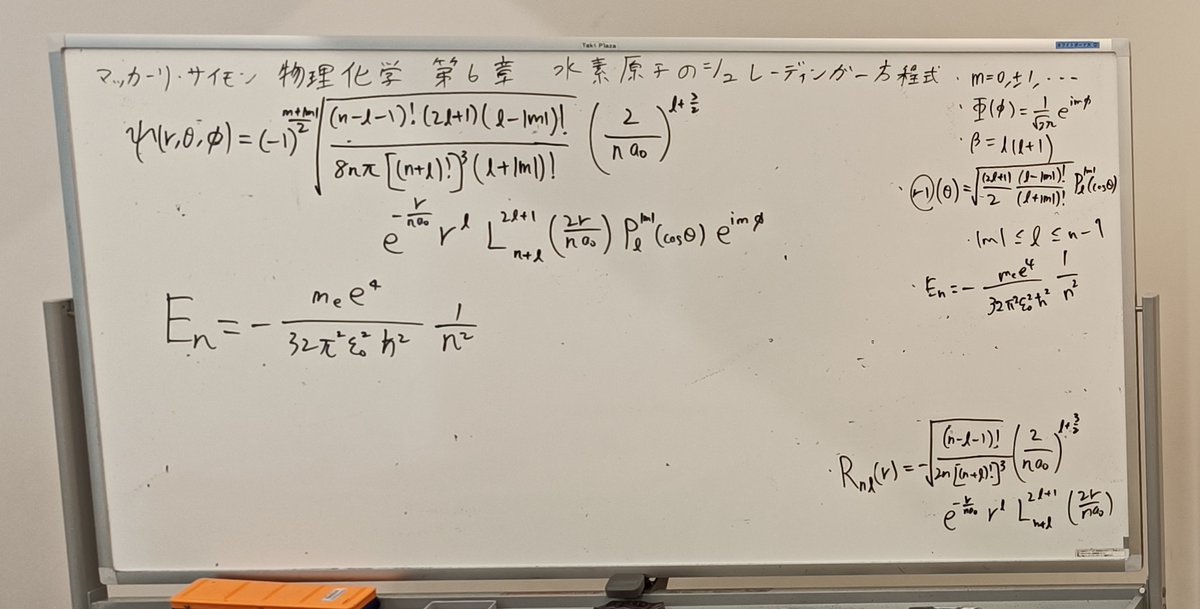 Taki Plaza
マッカーリ・サイモン 物理化学 第6章 水素原子のシュレーディンガー方程式
ψ(r,θ,φ) = (-1)^{\frac{m+|m|}{2}} \sqrt{\frac{(n-l-1)!(2l+1)(l-|m|)!}{8nπ[(n+l)!]^3(l+|m|)!}} \left(\frac{2}{na_0}\right)^{l+\frac{3}{2}}
e^{-\frac{r}{na_0}} r^l L_{n+l}^{2l+1}\left(\frac{2r}{na_0}\right) P_l^{|m|}(cosθ) e^{imφ}
E_n = -\frac{m_e e^4}{32π^2ε_0^2ħ^2} \frac{1}{n^2}
・m=0,±1,…
・Φ(φ) = \frac{1}{\sqrt{2π}} e^{imφ}
・β = l(l+1)
・Θ(θ) = \sqrt{\frac{(2l+1)}{2} \frac{(l-|m|)!}{(l+|m|)!}} P_l^{|m|}(cosθ)
・|m| ≤ l ≤ n-1
・E_n = -\frac{m_e e^4}{32π^2ε_0^2ħ^2} \frac{1}{n^2}
・R_{nl}(r) = -\sqrt{\frac{(n-l-1)!}{2n[(n+l)!]^3}} \left(\frac{2}{na_0}\right)^{l+\frac{3}{2}}
e^{-\frac{r}{na_0}} r^l L_{n+l}^{2l+1}\left(\frac{2r}{na_0}\right)